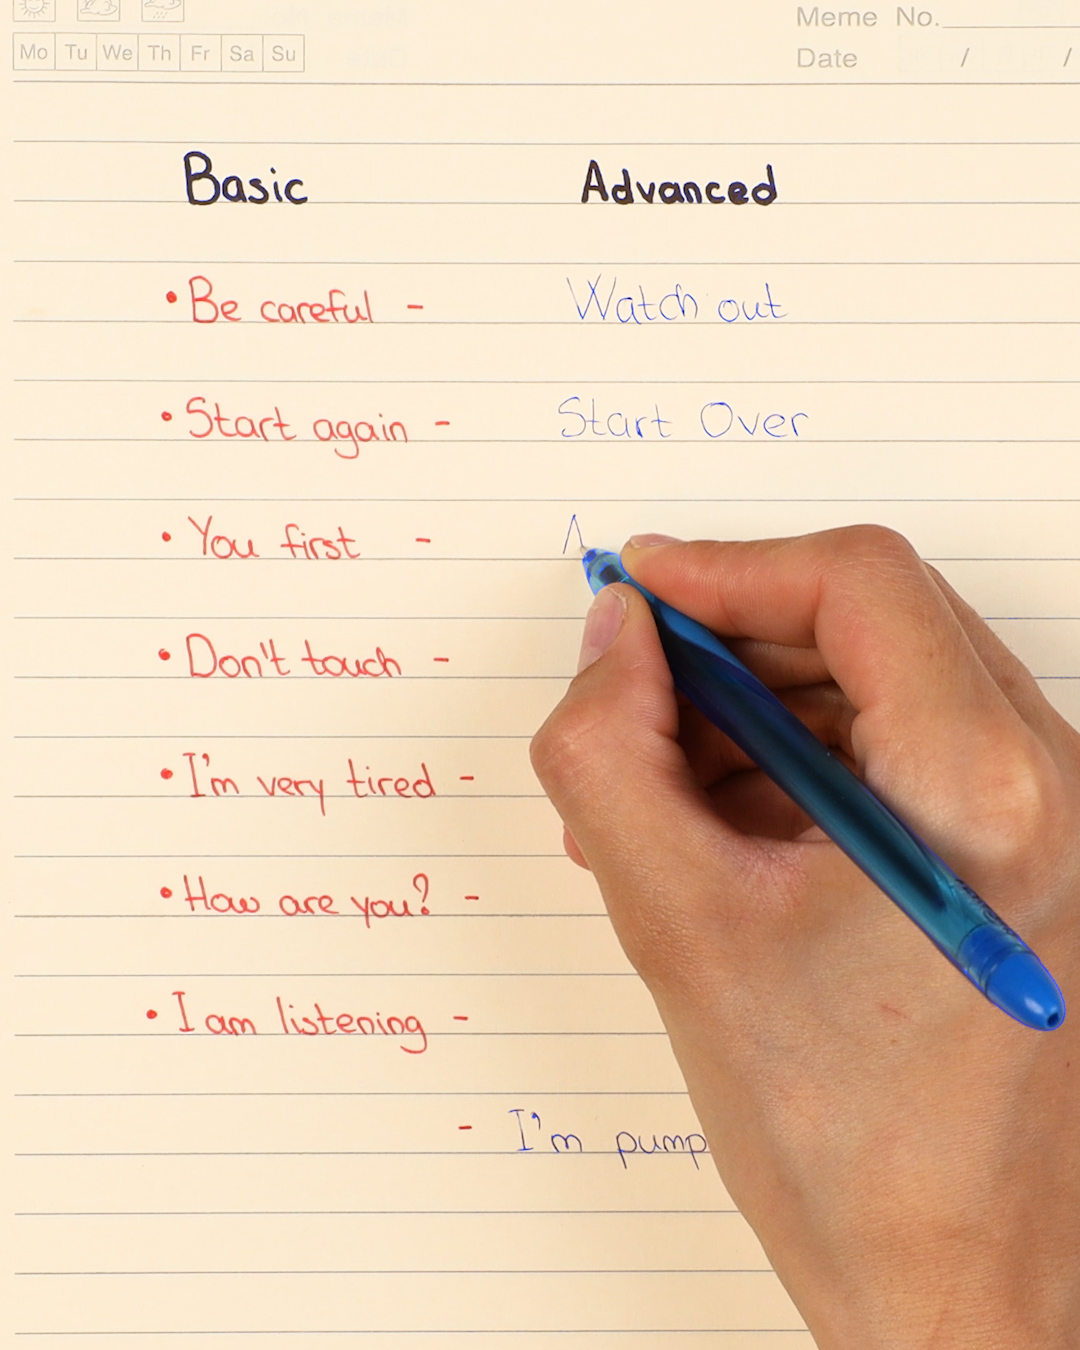 Meme No.
Mo Tu We Th Fr Sa Su
Date / /
Basic Advanced
• Be careful - Watch out
• Start again - Start Over
• You first -
• Don't touch -
• I'm very tired -
• How are you? -
• I am listening -
- I'm pump